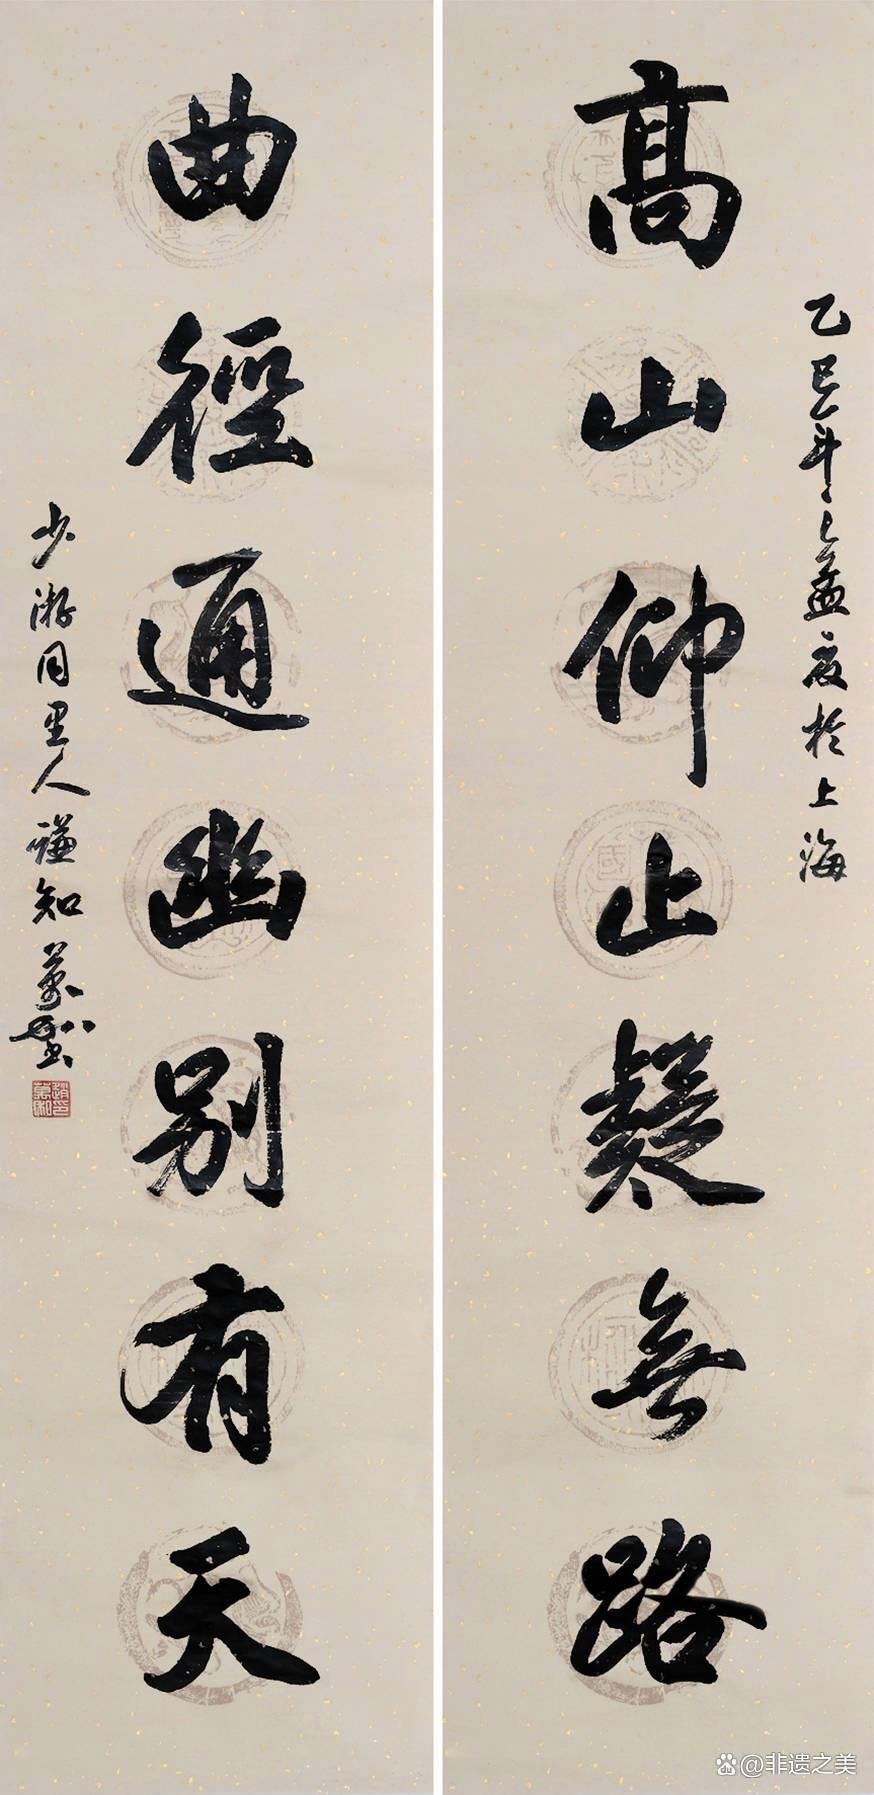 高山仰止疑無路
乙巳年之孟夏於上海
曲徑通幽別有天
少游同里人謙知萬型
@非遗之美